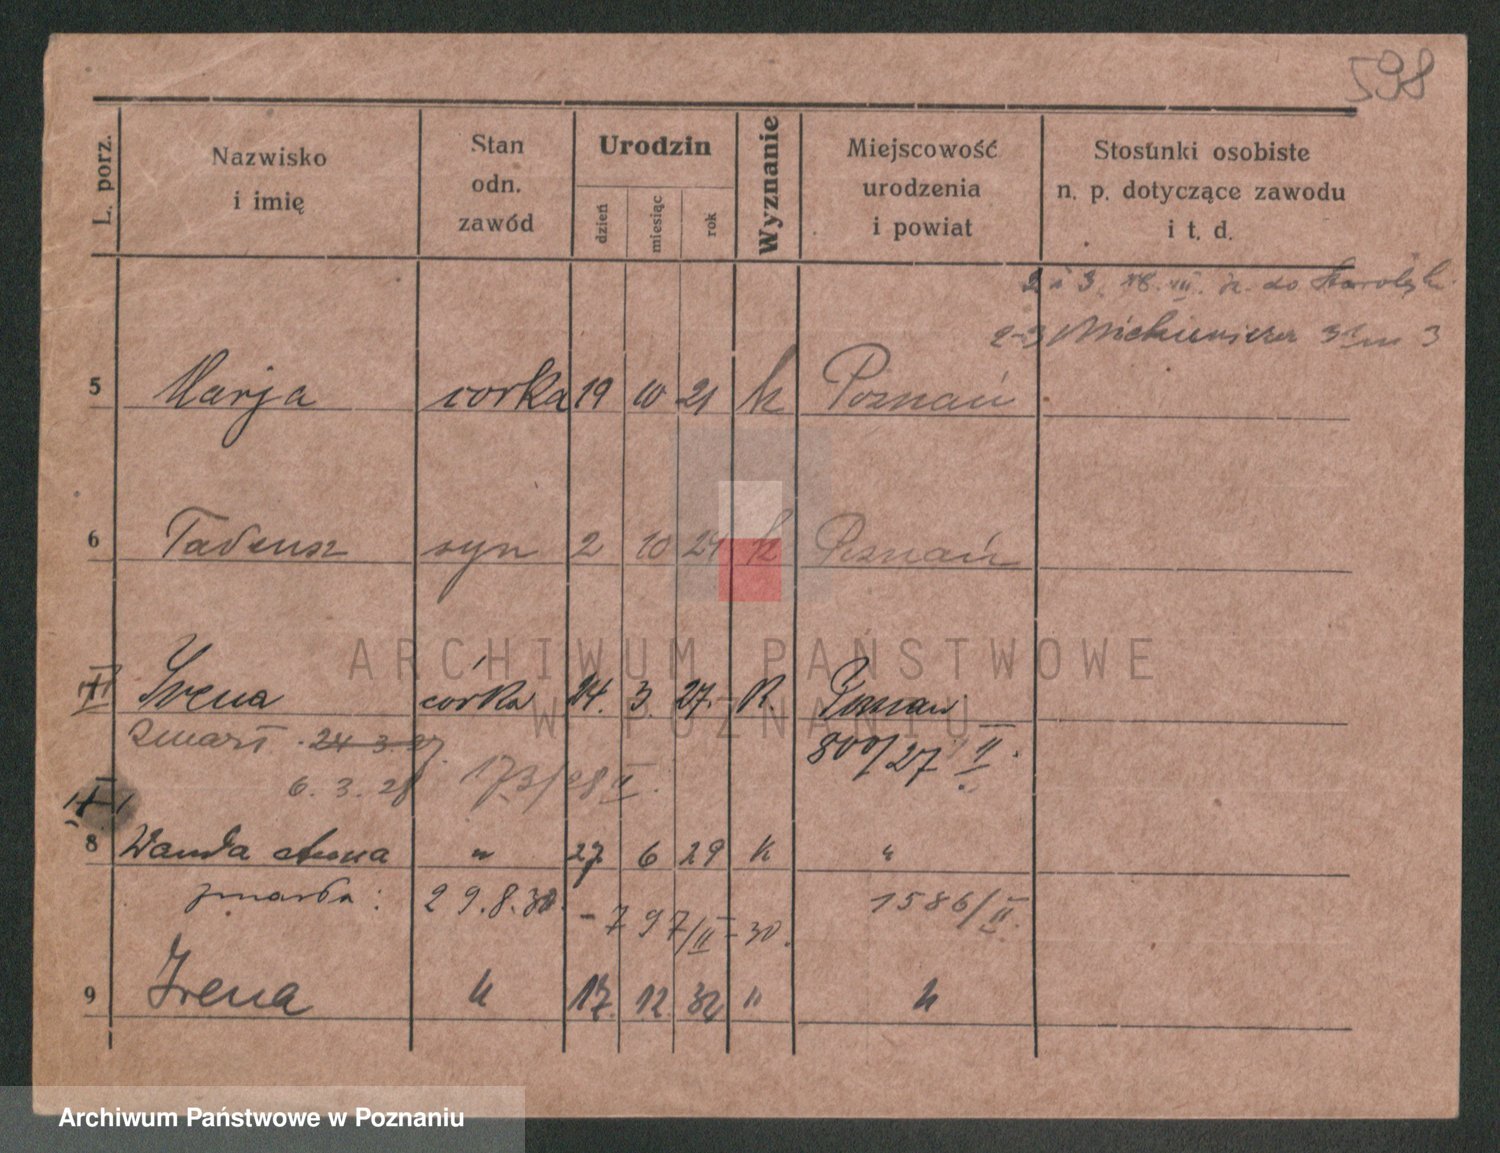 598
L. porz.
Nazwisko
i imię
Stan
odn.
zawód
Urodzin
dzień
miesiąc
rok
Wyznanie
Miejscowość
urodzenia
i powiat
Stosunki osobiste
n. p. dotyczące zawodu
i t. d.
2 i 3. 18. VII. do
2-3 Mickiewicza 3
5 Marja corka 19 10 21 k Poznań
6 Tadeusz syn 2 10 24 k Poznań
Irena córka 24. 3. 27. k. Poznań
zmarł 24 3 27. 800/27 II.
6. 3. 28 173/28 II.
8 Wanda Anna " 27 6 29 k "
zmarła: 29.8.30. - 797/II - 30. 1586/II.
9 Irena " 17. 12. 32 " "
ARCHIWUM PAŃSTWOWE
W POZNANIU
Archiwum Państwowe w Poznaniu